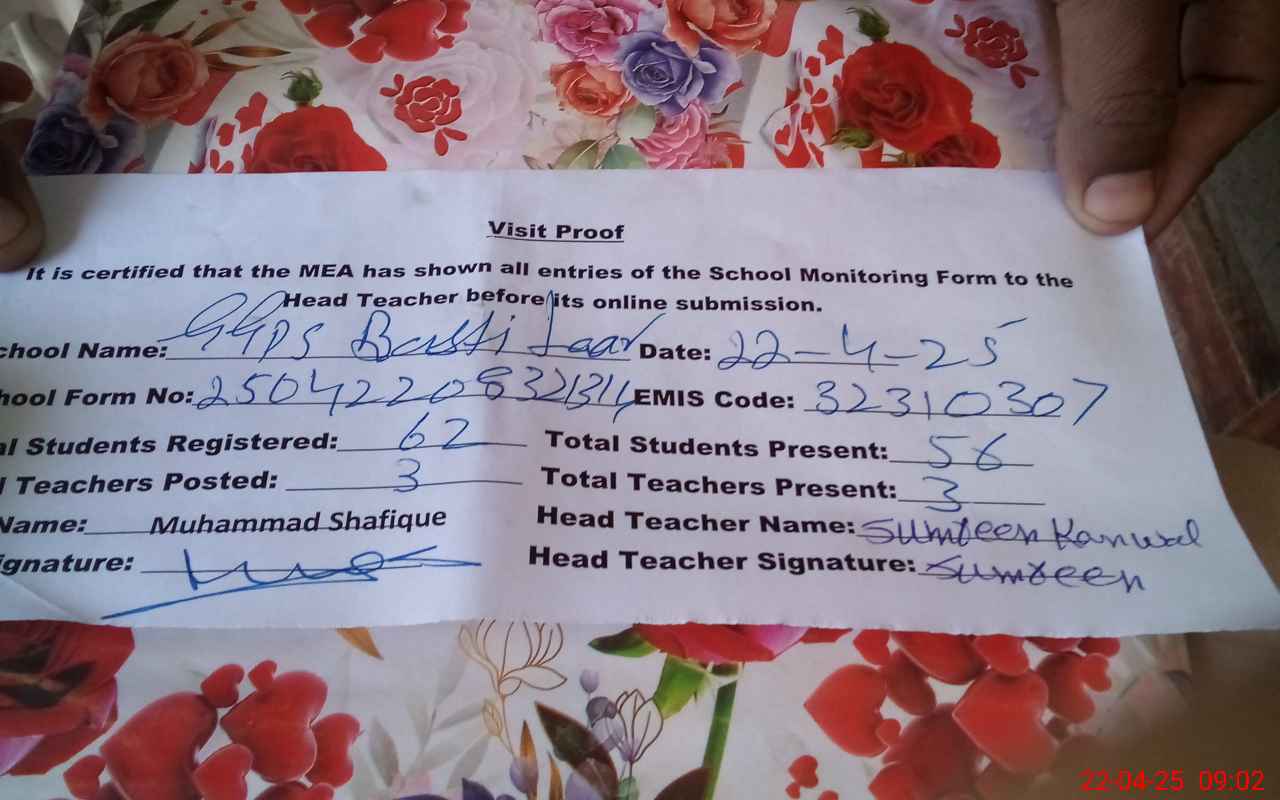 Visit Proof
It is certified that the MEA has shown all entries of the School Monitoring Form to the
Head Teacher before its online submission.
chool Name: GGPS Basti Laar Date: 22-4-25
hool Form No: EMIS Code: 32310307
al Students Registered: 62 Total Students Present: 56
l Teachers Posted: 3 Total Teachers Present: 3
Name: Muhammad Shafique Head Teacher Name: Sumreen Kanwal
ignature: Head Teacher Signature: Sumreen
22-04-25 09:02